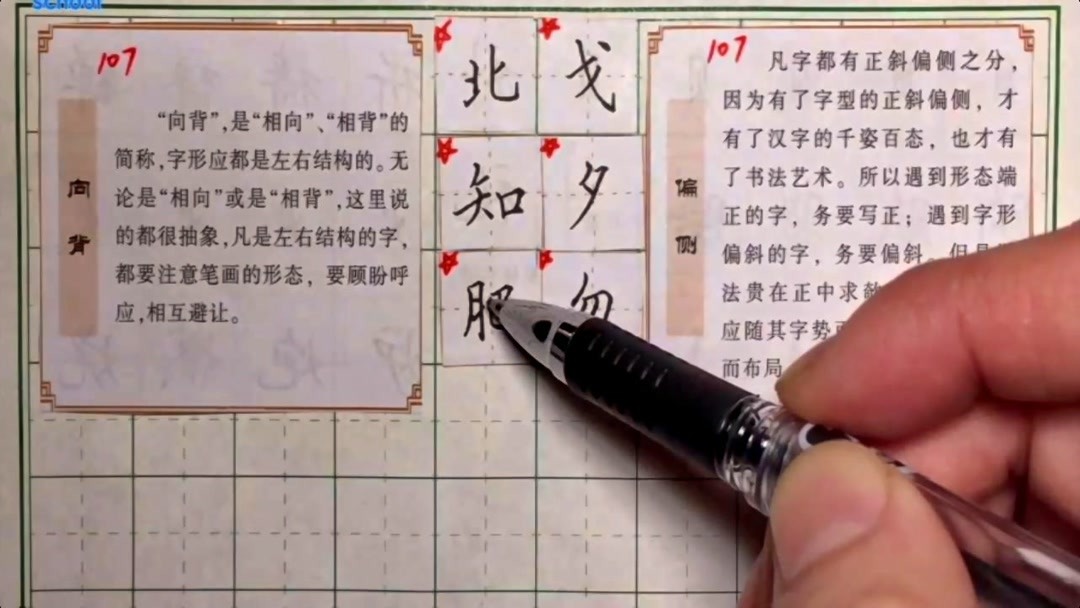 school
107
向背
“向背”,是“相向”、“相背”的
简称,字形应都是左右结构的。无
论是“相向”或是“相背”,这里说
的都很抽象,凡是左右结构的字,
都要注意笔画的形态，要顾盼呼
应,相互避让。
北 戈
知 夕
肥 勿
107
偏侧
凡字都有正斜偏侧之分，
因为有了字型的正斜偏侧，才
有了汉字的千姿百态，也才有
了书法艺术。所以遇到形态端
正的字，务要写正；遇到字形
偏斜的字，务要偏斜。但
法贵在正中求
应随其字势
而布局